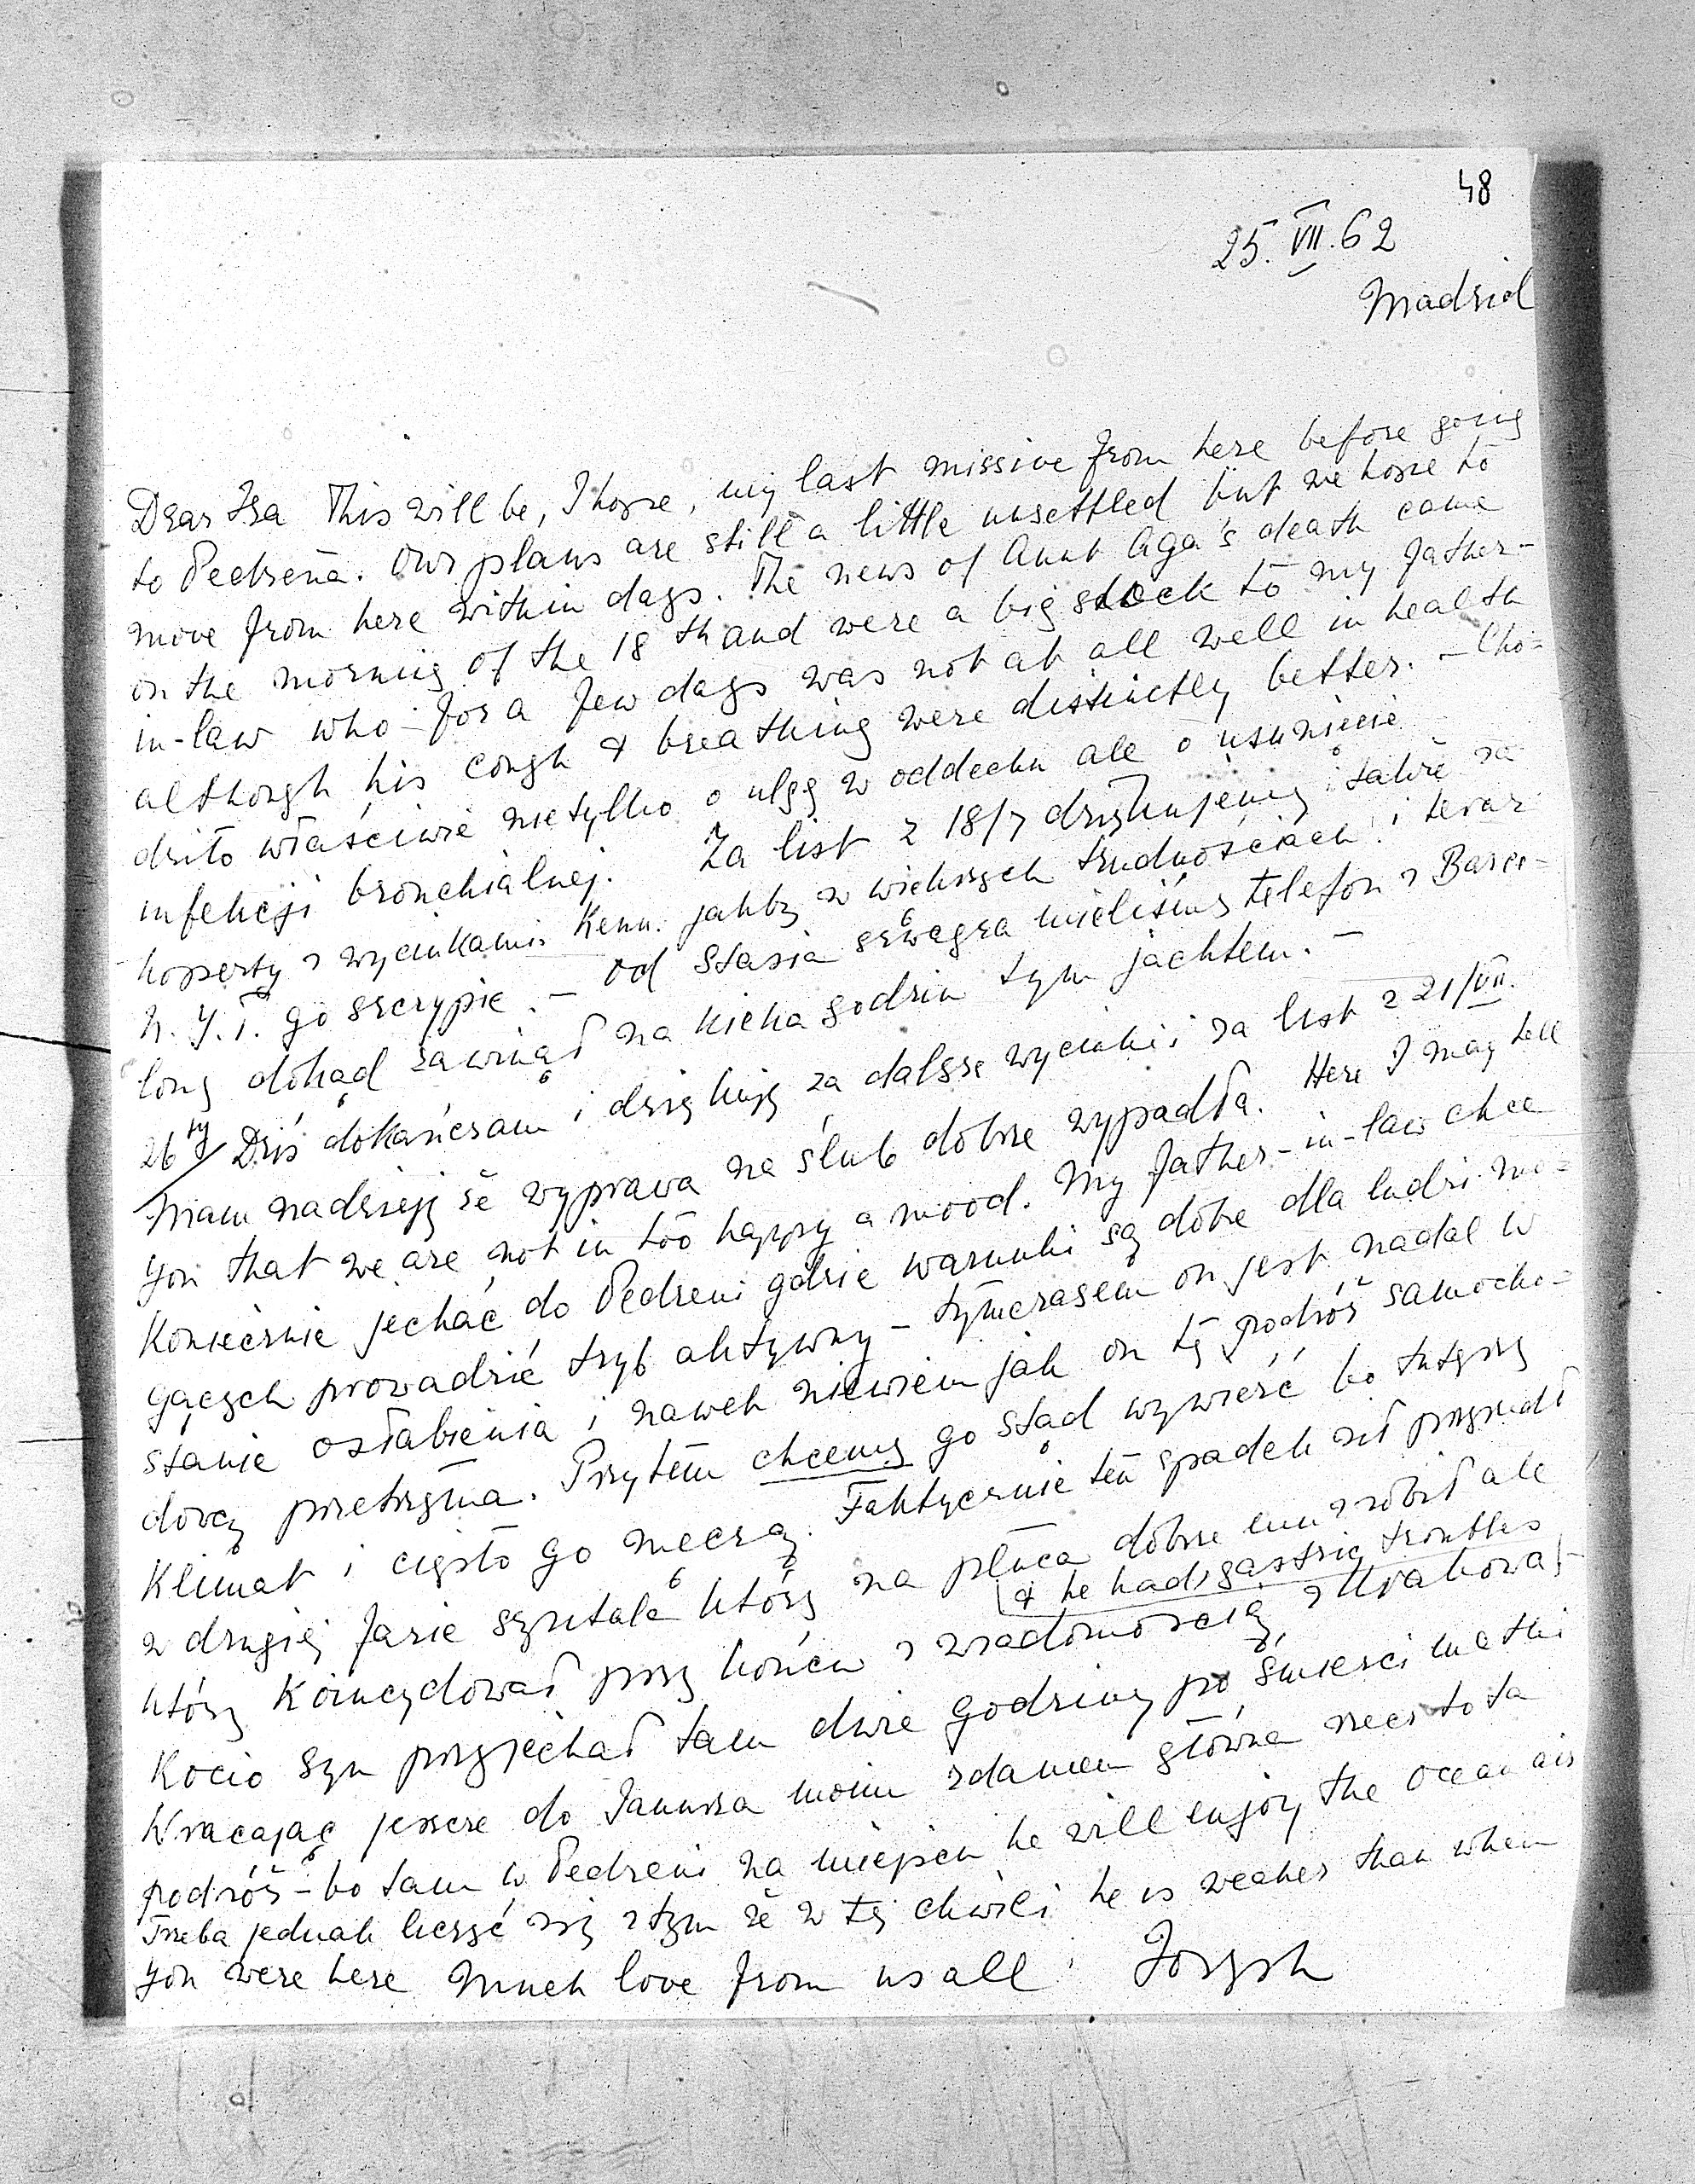 48
25. VII. 62
Madrid
Dear Isa This will be, I hope, my last missive from here before going
to Pedreña. Our plans are still a little unsettled but we hope to
move from here within days. The news of Aunt Aga's death came
on the morning of the 18th and were a big shock to my father-
in-law who for a few days was not at all well in health
although his cough & breathing were distinctly better. – Cho=
dziło właściwie nietylko o ulgę w oddechu ale o usunięcie
infekcji bronchialnej. Za list z 18/7 dziękujemy i także za
koperty z wycinkami. Kenn. jakby w większych trudnościach i teraz
N.Y.T. go szczypie. – Od Stasia szwagra mieliśmy telefon z Barce-
lony dokąd zawinął na kilka godzin tym jachtem. –
26ty/ Dziś dokańczam i dziękuję za dalsze wycinki i za list z 21/VII.
Mam nadzieję że wyprawa na ślub dobrze wypadła. Here I may tell
you that we are not in too happy a mood. My father-in-law chce
koniecznie jechać do Pedreni gdzie warunki są dobre dla ludzi mo=
gących prowadzić tryb aktywny – tymczasem on jest nadal w
stanie osłabienia i nawet niewiem jak on tę podróż samocho=
dową przetrzyma. Przytem chcemy go stąd wywieść bo tutejszy
klimat i ciepło go męczą. Faktycznie ten spadek sił przyszedł
w drugiej fazie szpitala który na płuca dobrze mu zrobił ale
& he had gastric troubles
który koincydował przy końcu z wiadomością z Krakowa!
Kocio syn przyjechał tam dwie godziny po śmierci matki
Wracając jeszcze do Janusza moim zdaniem główna rzecz to ta
podróż – bo tam w Pedreni na miejscu he will enjoy the ocean air
Trzeba jednak liczyć się z tym że w tej chwili he is weaker than when
you were here Much love from us all Joseph